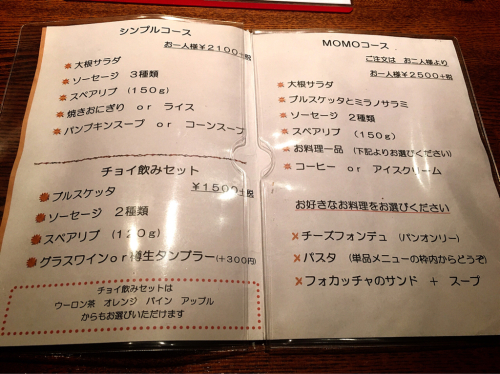 シンプルコース
お一人様￥2100+税
大根サラダ
ソーセージ 3種類
スペアリブ (150g)
焼きおにぎり or ライス
パンプキンスープ or コーンスープ
チョイ飲みセット
￥1500+税
ブルスケッタ
ソーセージ 2種類
スペアリブ (120g)
グラスワインor樽生タンブラー(+300円)
チョイ飲みセットは
ウーロン茶 オレンジ パイン アップル
からもお選びいただけます
MOMOコース
ご注文は お二人様より
お一人様￥2500+税
大根サラダ
ブルスケッタとミラノサラミ
ソーセージ 2種類
スペアリブ (150g)
お料理一品 (下記よりお選びください)
コーヒー or アイスクリーム
お好きなお料理をお選びください
チーズフォンデュ (パンオンリー)
パスタ (単品メニューの枠内からどうぞ)
フォカッチャのサンド + スープ